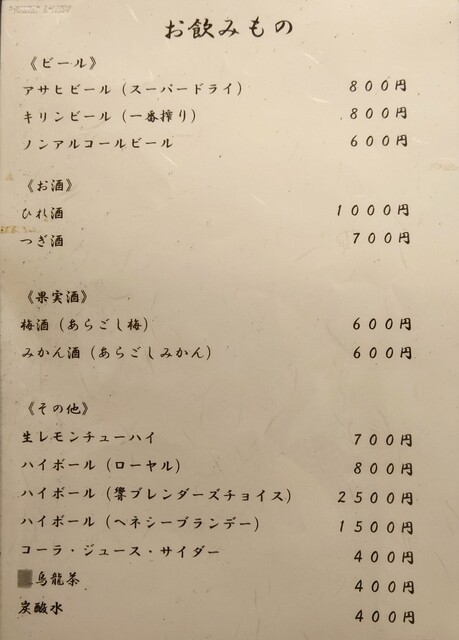 お飲みもの
《ビール》
アサヒビール（スーパードライ） 800円
キリンビール（一番搾り） 800円
ノンアルコールビール 600円
《お酒》
ひれ酒 1000円
つぎ酒 700円
《果実酒》
梅酒（あらごし梅） 600円
みかん酒（あらごしみかん） 600円
《その他》
生レモンチューハイ 700円
ハイボール（ローヤル） 800円
ハイボール（響ブレンダーズチョイス） 2500円
ハイボール（ヘネシーブランデー） 1500円
コーラ・ジュース・サイダー 400円
烏龍茶 400円
炭酸水 400円